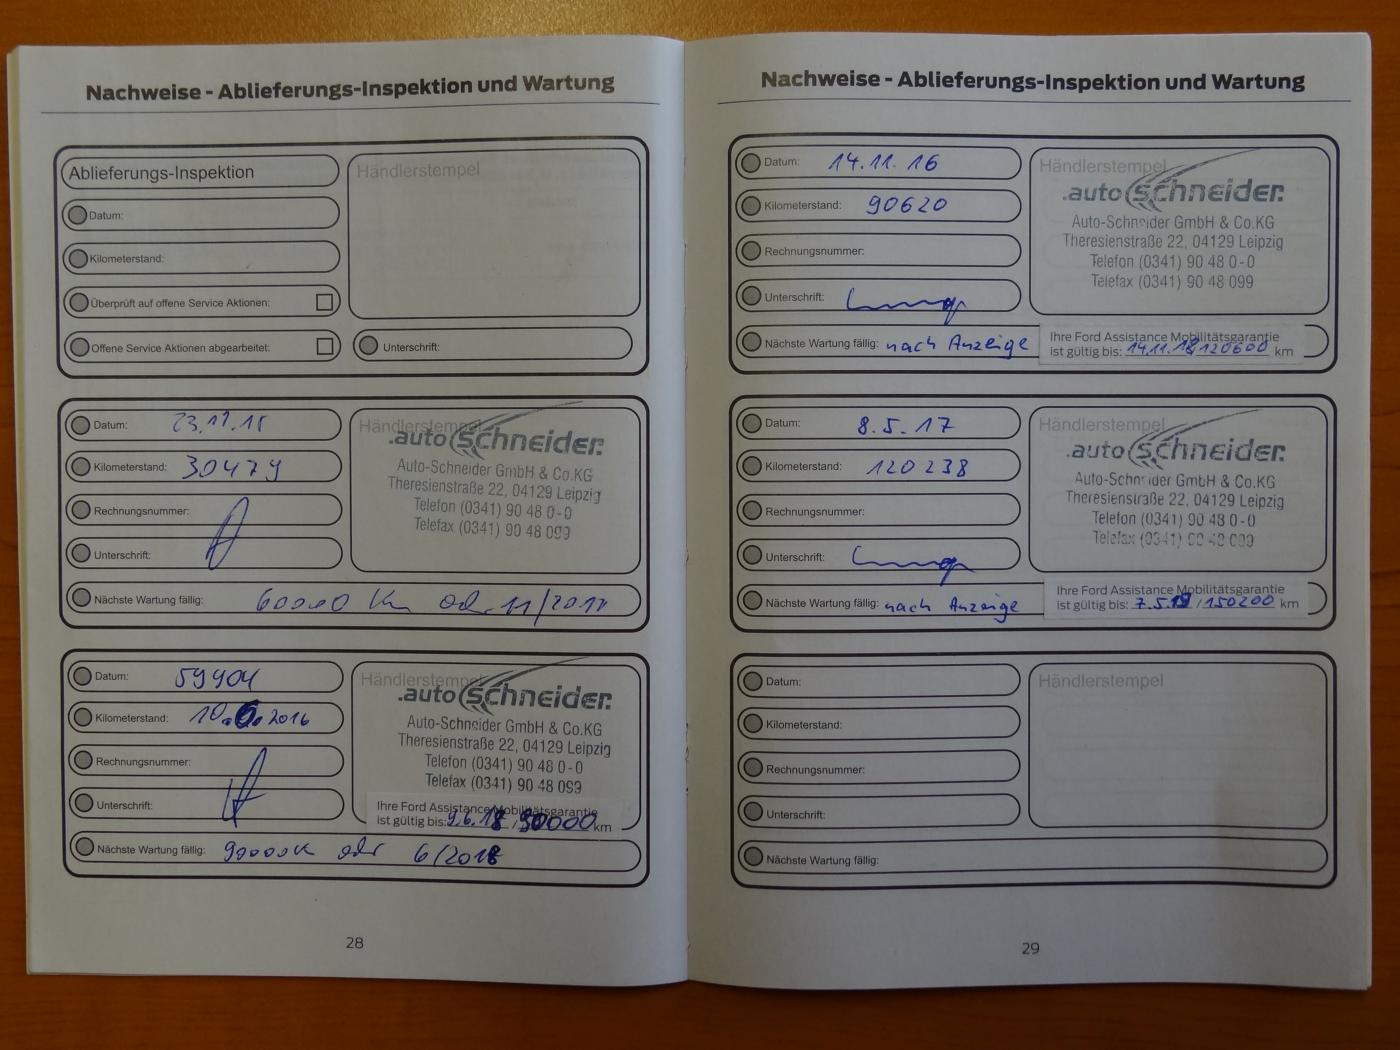 Nachweise - Ablieferungs-Inspektion und Wartung
Ablieferungs-Inspektion
Datum:
Kilometerstand:
Überprüft auf offene Service Aktionen:
Offene Service Aktionen abgearbeitet:
Händlerstempel
Unterschrift:
Datum: 23.11.15
Kilometerstand: 30479
Rechnungsnummer:
Unterschrift:
Händlerstempel
.auto schneider.
Auto-Schneider GmbH & Co.KG
Theresienstraße 22, 04129 Leipzig
Telefon (0341) 90 48 0-0
Telefax (0341) 90 48 099
Nächste Wartung fällig: 60000 km oder 11/2017
Datum: 59904
Kilometerstand: 10.6.2016
Rechnungsnummer:
Unterschrift:
Händlerstempel
.auto schneider.
Auto-Schneider GmbH & Co.KG
Theresienstraße 22, 04129 Leipzig
Telefon (0341) 90 48 0-0
Telefax (0341) 90 48 099
Ihre Ford Assistance Mobilitätsgarantie
ist gültig bis: 9.6.18 / 90000 km
Nächste Wartung fällig: 90000 oder 6/2018
28
Nachweise - Ablieferungs-Inspektion und Wartung
Datum: 14.11.16
Kilometerstand: 90620
Rechnungsnummer:
Unterschrift:
Händlerstempel
.auto schneider.
Auto-Schneider GmbH & Co.KG
Theresienstraße 22, 04129 Leipzig
Telefon (0341) 90 48 0-0
Telefax (0341) 90 48 099
Nächste Wartung fällig: nach Anzeige
Ihre Ford Assistance Mobilitätsgarantie
ist gültig bis: 14.11.18 / 120600 km
Datum: 8.5.17
Kilometerstand: 120238
Rechnungsnummer:
Unterschrift:
Händlerstempel
.auto schneider.
Auto-Schneider GmbH & Co.KG
Theresienstraße 22, 04129 Leipzig
Telefon (0341) 90 48 0-0
Telefax (0341) 90 48 099
Nächste Wartung fällig: nach Anzeige
Ihre Ford Assistance Mobilitätsgarantie
ist gültig bis: 7.5.19 / 150200 km
Datum:
Kilometerstand:
Rechnungsnummer:
Unterschrift:
Händlerstempel
Nächste Wartung fällig:
29